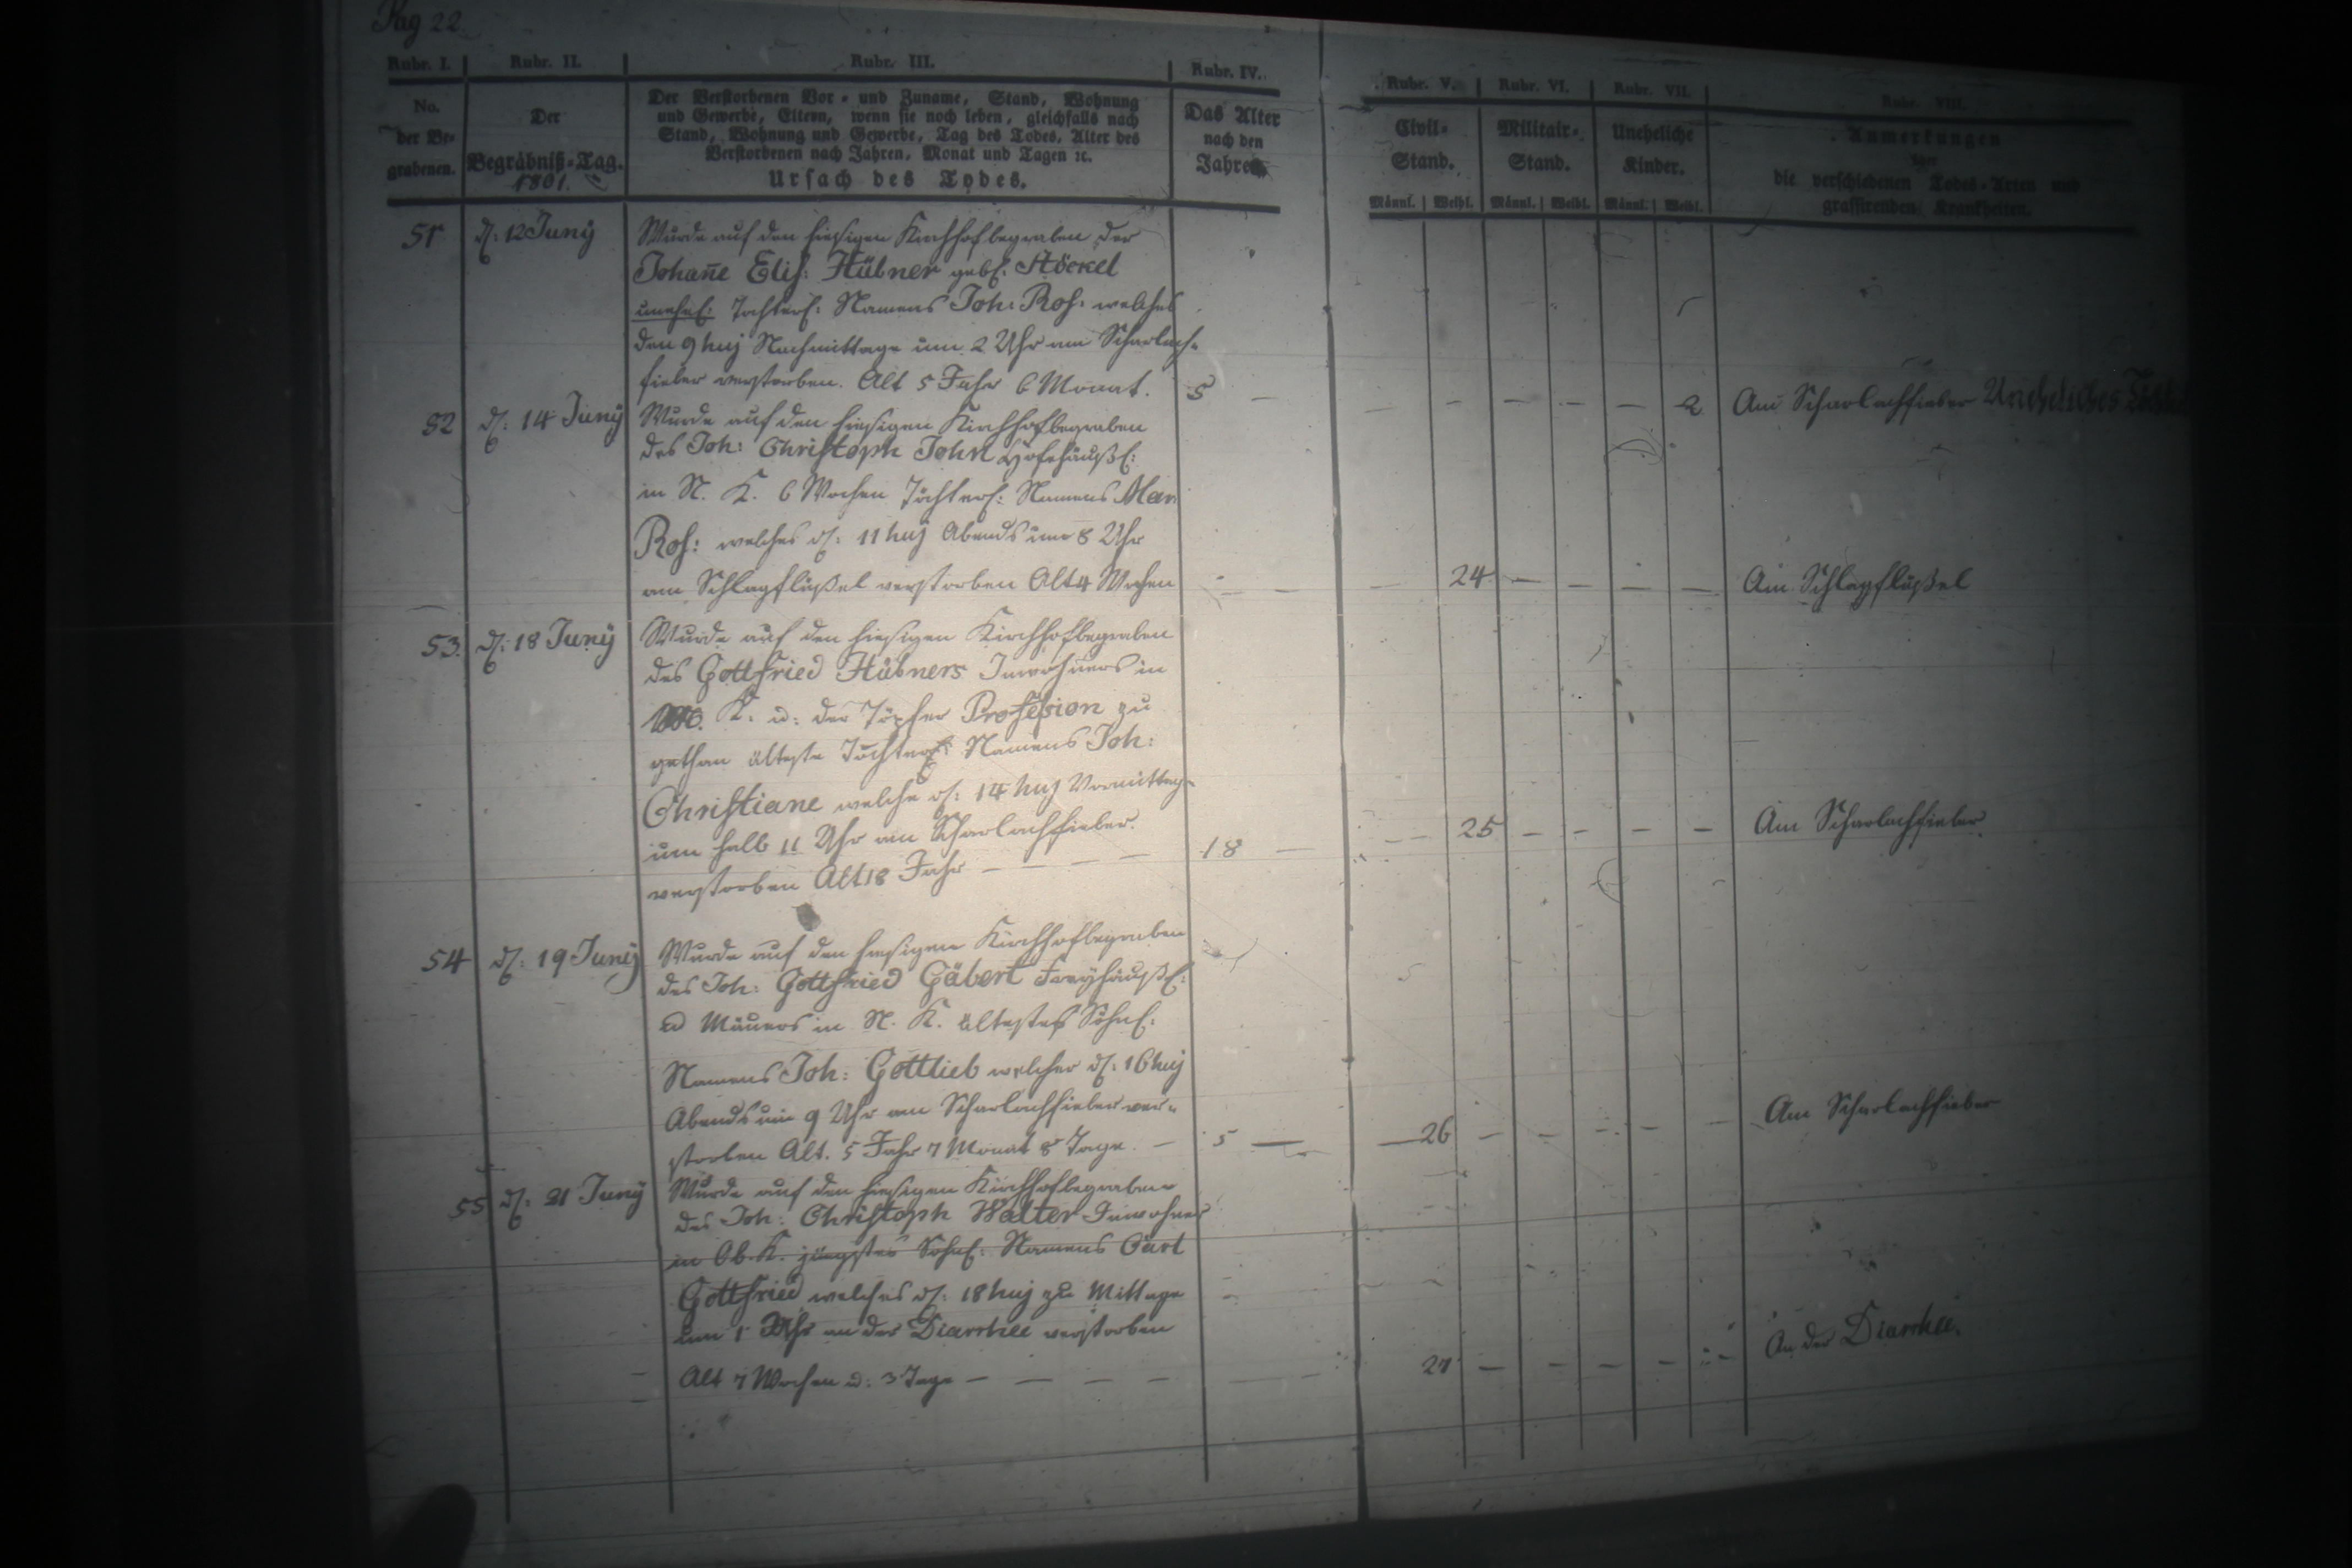 Pag 22.
Rubr. I. Rubr. II. Rubr. III. Rubr. IV. Rubr. V. Rubr. VI. Rubr. VII. Rubr. VIII.
No. der Be- grabenen.
Der Begräbniß-Tag. 1801.
Der Verstorbenen Vor- und Zuname, Stand, Wohnung
und Gewerbe, Eltern, wenn sie noch leben, gleichfalls nach
Stand, Wohnung und Gewerbe, Tag des Todes, Alter des
Verstorbenen nach Jahren, Monat und Tagen ꝛc.
Ursach des Todes.
Das Alter nach den Jahren
Civil- Stand.
Militair- Stand.
Uneheliche Kinder.
Anmerkungen
über
die verschiedenen Todes-Arten und
grassirenden Krankheiten.
Männl. Weibl. Männl. Weibl. Männl. Weibl.
51 d: 12 Juny Wurde auf den hiesigen Kirchhof begraben der
Johañe Elis: Hübner gebl: Stöckel
unehel: Töchterl: Namens Joh: Ros: welches
den 9 huj Nachmittags um 2 Uhr am Scharlach-
fieber verstorben. Alt 5 Jahr 6 Monat. 5 — — — — — — 2 Am Scharlachfieber Uneheliches
52 d: 14 Juny Wurde auf den hiesigen Kirchhof begraben
des Joh: Christoph John Hofehäusl:
in N. K. 6 Wochen Töchterl: Namens Mar:
Ros: welches d: 11 huj Abends um 8 Uhr
am Schlagflüßel verstorben Alt 4 Wochen — — — 24 — — — — Am Schlagflüßel
53. d: 18 Juny Wurde auf den hiesigen Kirchhof begraben
des Gottfried Hübners Inwohners in
K. u: der Töpfer Profeßion zu
gethan älteste Töchterl: Namens Joh:
Christiane welche d: 14 huj Vormittag-
um halb 11 Uhr am Scharlachfieber
verstorben Alt 18 Jahr — — — — 18 — — 25 — — — — Am Scharlachfieber
54 d: 19 Juny Wurde auf den hiesigen Kirchhof begraben
des Joh: Gottfried Gäbert Freyhäusl:
u Mäuers in N. K. ältestes Söhnl:
Namens Joh: Gottlieb welcher d: 16 huj
Abends um 9 Uhr am Scharlachfieber ver-
storben Alt. 5 Jahr 7 Monat 8 Tage. — 5 — — 26 — — — — — Am Scharlachfieber
55 d: 21 Juny Wurde auf den hiesigen Kirchhof begraben
des Joh: Christoph Walter Inwohner
in Ob. K. jüngstes Söhnl: Namens Carl
Gottfried welches d: 18 huj zu Mittage
um 1 Uhr an der Diarrhee verstorben
Alt 7 Wochen u: 3 Tage — — — — — — 27 — — — — — An der Diarrhee.